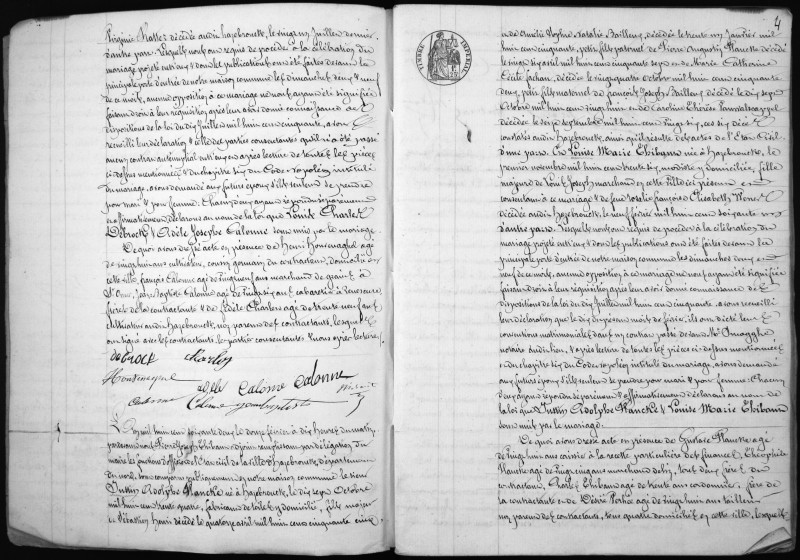 décédée audit hazebrouck, le vingt un Juillet dernier,
d'autre part. Lesquels nous ont requis de procéder à la célébration du
mariage projeté entr'eux & dont les publications ont été faites devant la
principale porte d'entrée de notre maison commune les dimanches deux & neuf
de ce mois, aucune opposition à ce mariage ne nous ayant été signifiée
faisant droit à leur réquisition après leur avoir donné connaissance des
dispositions de la loi du dix Juillet mil huit cent cinquante, avons
recueilli leur déclaration
après lecture de toutes les pièces
ci-dessus mentionnées & du chapitre six du Code Napoléon intitulé
du mariage, avons demandé aux futurs époux s'ils veulent se prendre
pour mari & pour femme. Chacun d'eux ayant répondu séparément
& affirmativement, déclarons au nom de la loi que Louis Charles
Debrock & Adèle Josephe Calonne sont unis par le mariage.
De quoi avons dressé acte en présence de Henri agé
de vingt huit ans cultivateur, cousin germain du contractant, domicilié en
cette ville, François Calonne agé de vingt neuf ans marchand de grains à
St Omer, Jean Baptiste Calonne agé de vingt six ans cabaretier à Renescure,
frères de la contractante & Fidèle Charley agé de trente neuf ans
cultivateur audit hazebrouck, non parent des contractants, lesquels
ont signé avec les contractants, les parties consentantes & nous après lecture.
debrock Charley
adèle Calonne Calonne
Calonne
L'an mil huit cent soixante deux le douze février à dix heures du matin,
par devant nous
maire les fonctions d'officier de l'Etat civil de la ville d'hazebrouck, département
du nord, sont comparus publiquement en notre maison commune le sieur
Justin Adolphe Plancke né à hazebrouck, le dix sept Octobre
mil huit cent trente quatre, fabricant de toiles y domicilié, fils majeur
décédé le quatorze avril mil huit cent cinquante cinq,
4
TIMBRE IMPERIAL
& de Amélie Sophie Natalie Bailleux, décédée le trente un Janvier mil
huit cent cinquante, petit fils paternel de Pierre Augustin Plancke décédé
le vingt six avril mil huit cent cinquante sept & de Marie Catherine
Cécile décédée le vingt quatre Octobre mil huit cent cinquante
deux, petit fils maternel de François Joseph Bailleux décédé le dix sept
Octobre mil huit cent vingt huit & de Caroline Thérèse
décédée le seize septembre mil huit cent vingt six, ces six décès
constatés audit hazebrouck, ainsi qu'il résulte des actes de l'Etat Civil
d'une part. Et Louise Marie Thibaut née à hazebrouck, le
premier novembre mil huit cent trente six, modiste y domiciliée, fille
majeure de Louis Joseph marchand en cette ville ici présent &
consentant à ce mariage & de feue Rosalie Françoise Elisabeth
décédée audit hazebrouck, le neuf février mil huit cent soixante un
d'autre part. Lesquels nous ont requis de procéder à la célébration du
mariage projeté entr'eux & dont les publications ont été faites devant la
principale porte d'entrée de notre maison commune les dimanches deux &
neuf de ce mois, aucune opposition à ce mariage ne nous ayant été signifiée
faisant droit à leur réquisition après leur avoir donné connaissance des
dispositions de la loi du dix Juillet mil huit cent cinquante, avons recueilli
leur déclaration que le dix du présent mois de février, ils ont arrêté leurs
conventions matrimoniales dans un contrat passé devant Me
notaire audit lieu, & après lecture de toutes les pièces ci-dessus mentionnées
& du chapitre six du Code Napoléon intitulé du mariage, avons demandé
aux futurs époux s'ils veulent se prendre pour mari & pour femme. Chacun
d'eux ayant répondu séparément & affirmativement déclarons au nom de
la loi que Justin Adolphe Plancke & Louise Marie Thibaut
sont unis par le mariage.
De quoi avons dressé acte en présence de Gustave Plancke agé
de vingt huit ans caissier à la recette particulière des finances, Théophile
Plancke agé de vingt cinq ans marchand de vin, tous deux frères du
contractant, Charles Thibaut agé de trente ans cordonnier, frère de
la contractante & Désiré agé de vingt huit ans tailleur
non parent des contractants, tous quatre domiciliés en cette ville, lesquels